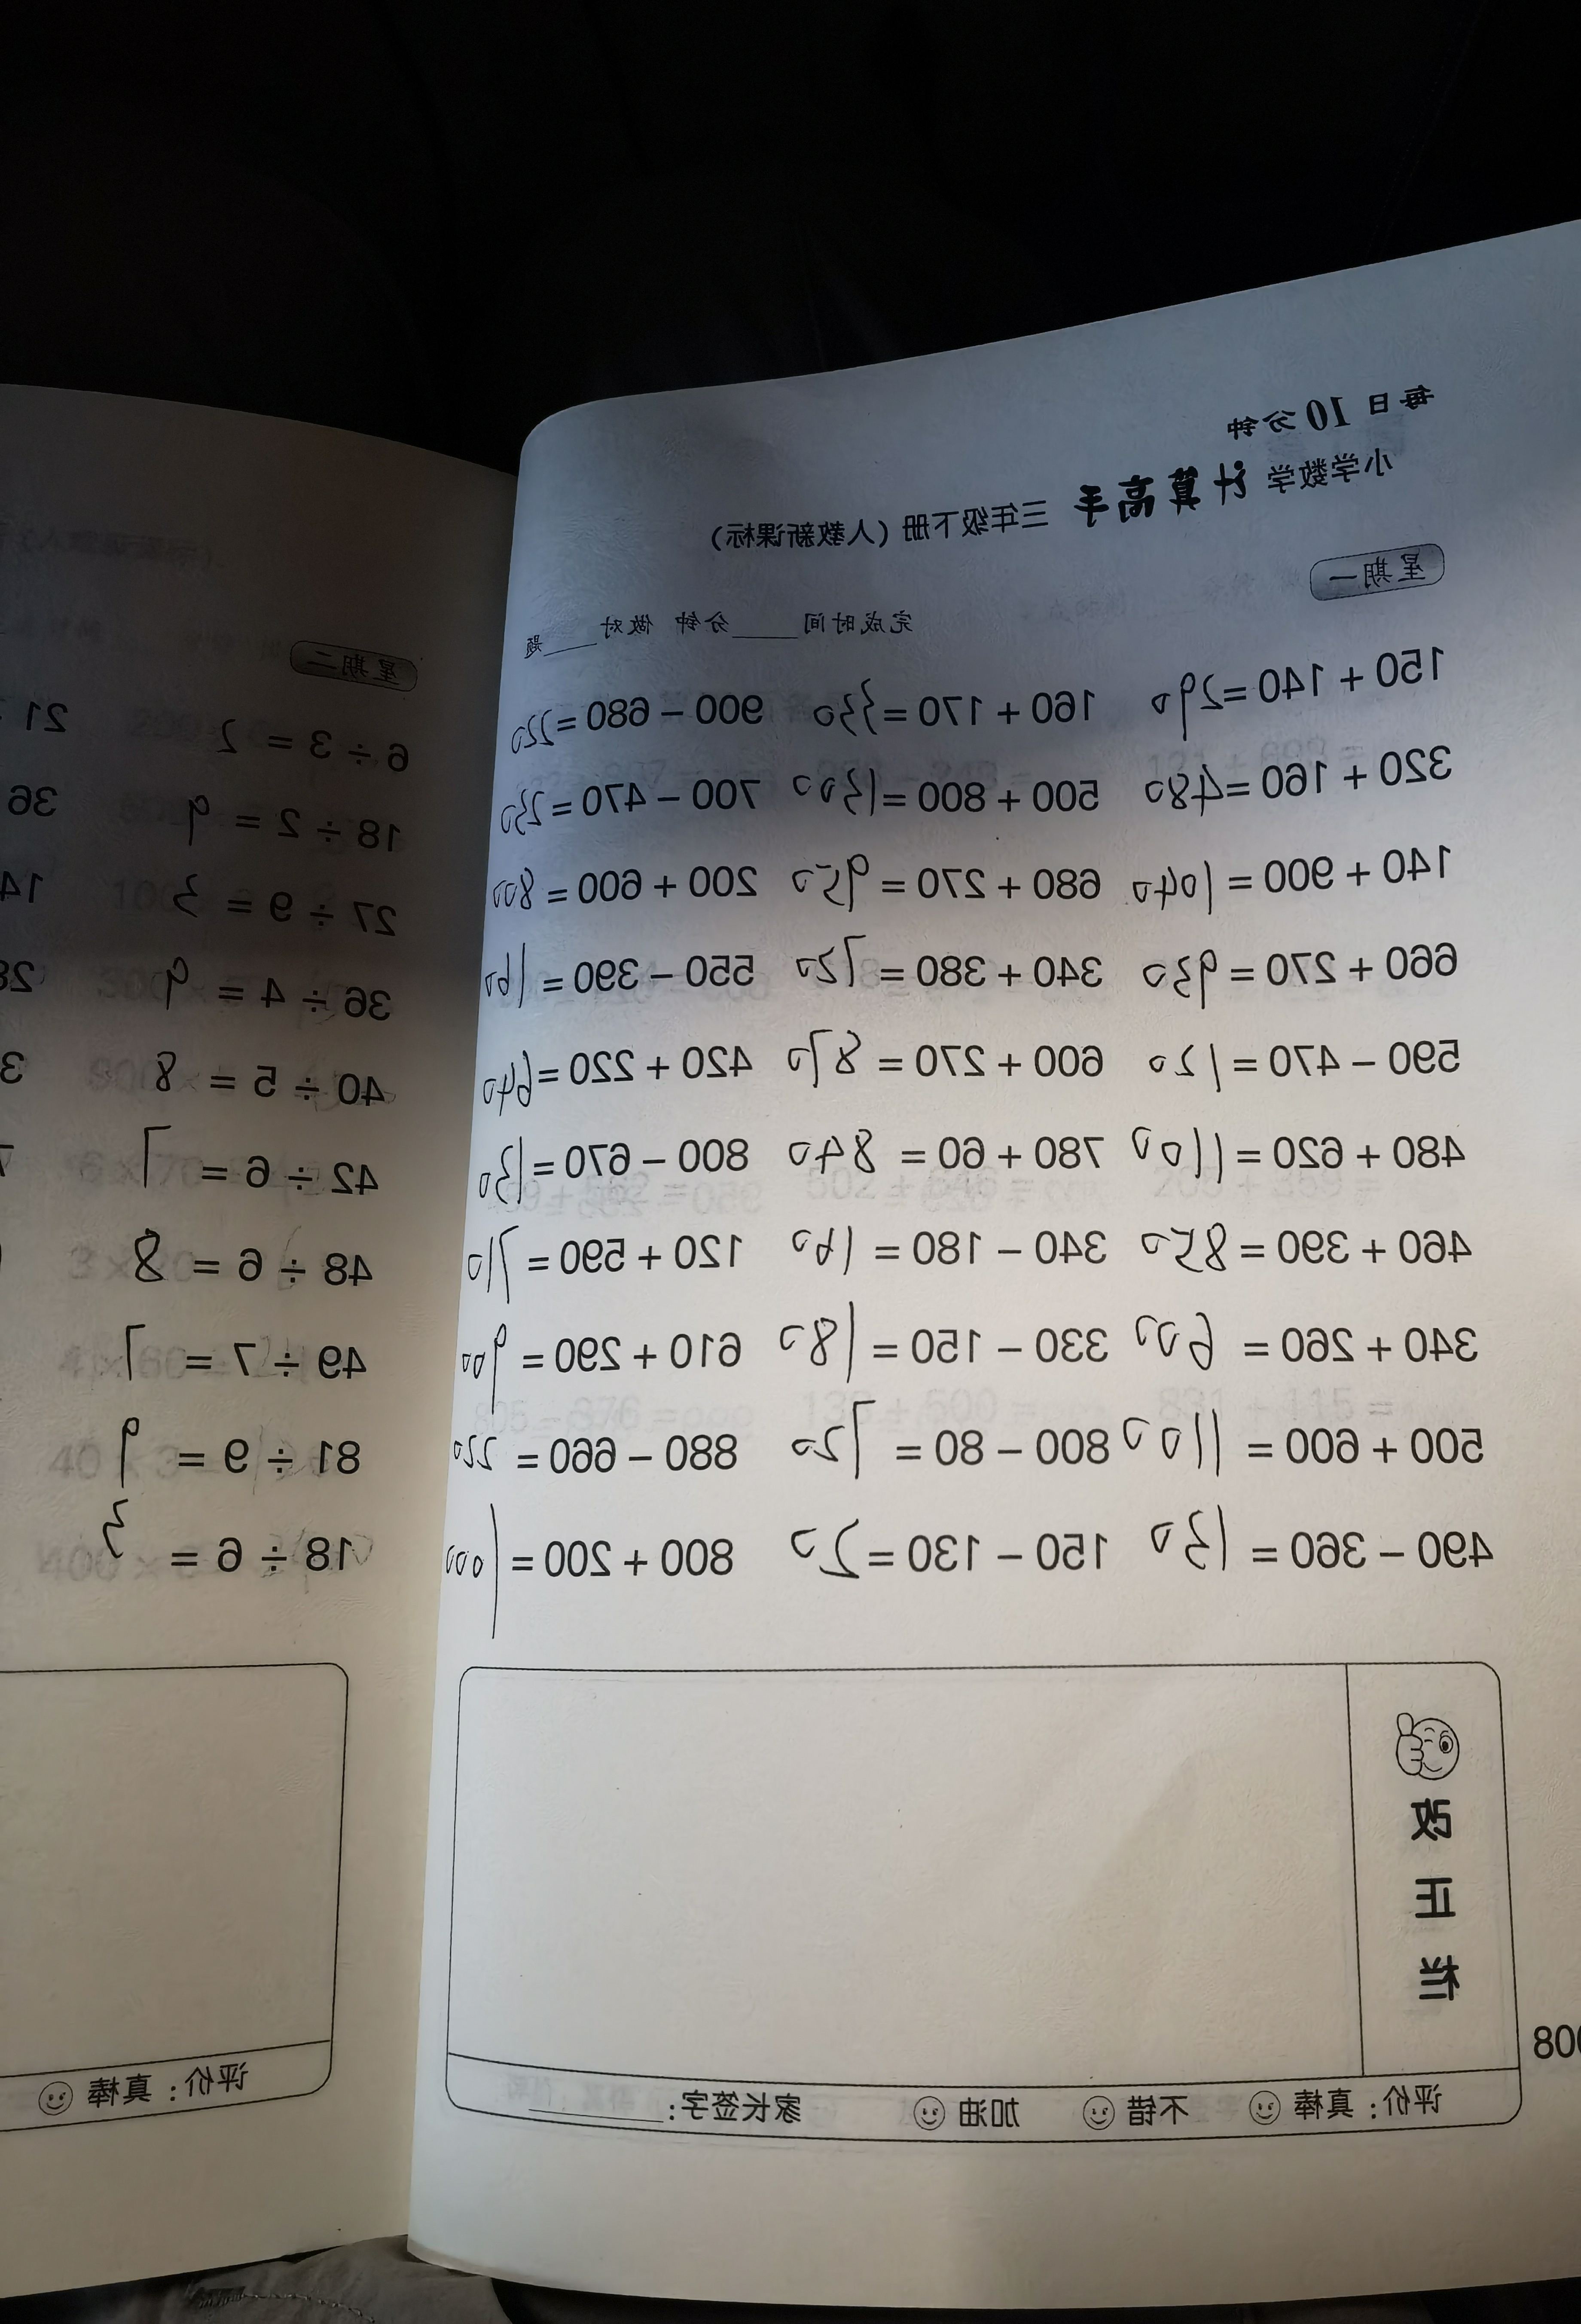 每日10分钟
小学数学 计算高手 三年级下册（人教新课标）
星期一
完成时间____分钟 做对____题
150 + 140 = 290 160 + 170 = 330 900 − 680 = 220
320 + 160 = 480 500 + 800 = 1300 700 − 470 = 230
140 + 900 = 1040 680 + 270 = 950 200 + 600 = 800
660 + 270 = 930 340 + 380 = 720 550 − 390 = 160
590 − 470 = 120 600 + 270 = 870 420 + 220 = 640
480 + 620 = 1100 780 + 60 = 840 800 − 670 = 130
460 + 390 = 850 340 − 180 = 160 120 + 590 = 710
340 + 260 = 600 330 − 150 = 180 610 + 290 = 900
500 + 600 = 1100 800 − 80 = 720 880 − 660 = 220
490 − 360 = 130 150 − 130 = 20 800 + 200 = 1000
改正栏
评价：真棒 不错 加油 家长签字：____
星期二
6 ÷ 3 = 2 21
18 ÷ 2 = 9 36
27 ÷ 9 = 3 14
36 ÷ 4 = 9 28
40 ÷ 5 = 8 3
42 ÷ 6 = 7 7
48 ÷ 6 = 8
49 ÷ 7 = 7
81 ÷ 9 = 9
18 ÷ 6 = 3
评价：真棒